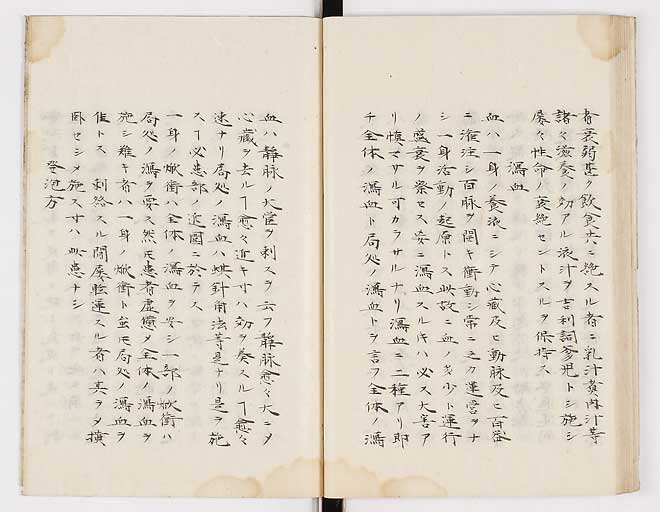 者衰弱甚ク飲食共ニ絶スル者ニ乳汁煑肉汁等
諸々滋養ノ効アル液汁ヲ吉利詞爹児トシ施シ
屡々性命ノ衰絶セントスルヲ保持ス
瀉血
血ハ一身ノ養液ニシテ心臓及ヒ動脉及ヒ百器
ニ灌注シ百脉ヲ開キ衝動シ常ニ之カ運営ヲナ
シ一身活動ノ起原トス此故ニ血ノ多少ト運行
ノ盛衰ヲ察セス妄ニ瀉血スルキハ必ス大害ア
リ慎マサル可カラサルナリ瀉血ニ二種アリ即
チ全体ノ瀉血ト局処ノ瀉血トヲ言フ全体ノ瀉
血ハ静脉ノ大管ヲ刺スヲ云フ静脉愈々大ニメ
心臓ヲ去ルヿ愈々近キ寸ハ効ヲ奏スルヿ愈々
速ナリ局処ノ瀉血ハ蜞針角法等是ナリ是ヲ施
スヿ必患部ノ近囲ニ於テス
一身ノ焮衝ハ全体ノ瀉血ヲ要シ一部ノ焮衝ハ
局処ノ瀉ヲ要ス然𪜈患者虚憊メ全体ノ瀉血ヲ
施シ難キ者ハ一身ノ焮衝ト雖𪜈局処ノ瀉血ヲ
佳トス刺絡スル間屡眩運スル者ハ其ヲメ横
臥セシメ施ス寸ハ此患ナシ
発泡方